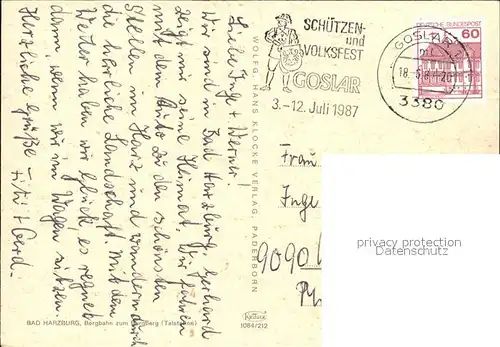 Liebe Inge + Werner!
Wir sind in Bad Harzburg, Gerhard
zeigt mir seine Heimat. Wir fahren
mit dem Auto zu den schönsten
Stellen im Harz und wandern durch
die herrliche Landschaft. Mit dem
Wetter haben wir Glück, es regnet
dann, wenn wir im Wagen sitzen.
Herzliche Grüße –
+ Gerd.
BAD HARZBURG, Bergbahn zum Burgberg (Talstation)
WOLFG. HANS KLOCKE VERLAG, PADERBORN
1084/212
SCHÜTZEN-
und
VOLKSFEST
GOSLAR
3.–12. Juli 1987
GOSLAR
3380
DEUTSCHE BUNDESPOST
60
Frau
Inge
9090
privacy protection
Datenschutz